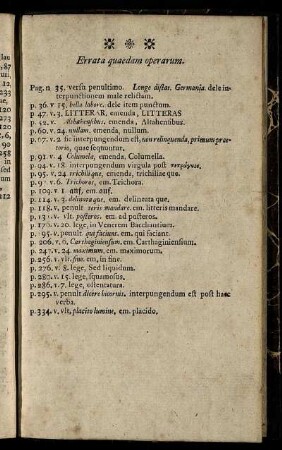 Errata quaedam operarum.
Pag. n 35. versu penultimo. Longe distat. Germania. dele in-
terpunctionem male relictam.
p. 36. v 15. bella labore. dele item punctum.
p. 47. v. 3. LITTERAR. emenda, LITTERAS
p. 52. v. emenda, Alohenibus.
p. 60. v. 24. nullam. emenda, nullum.
p. 67. v. 2. sic interpungendum est, tam relinquenda, primum prae-
toris, quae sequuntur.
p. 92. v. 4 Columella, emenda, Columella.
p. 94. v. 18. interpungendum virgula post
p. 95. v. 24 trichilaque, emenda, trichilae que.
p. 97. v. 6. Trichoras, em. Teichora.
p. 109. v. 1. auf, em. aus.
p. 114. v. 3. delineraque. em. delinenta que.
p. 118. v. penult veris mandare. em. litteris mandare.
p. 131. v. vlt. posteros. em. ad posteros.
p. 176. v. 20. lege, in Venerem Bacchantium.
p. 95. v. penult quae faciunt. em. qui faciant.
p. 206. v. 6. Carthaginensum. em. Carthaginiensium.
p. 247. v. 24. maximum, em. maximorum.
p. 256. v. vlt. fine. em, in fine.
p. 276. v. 8. lege, Sed liquidum.
p. 280. v. 15. lege, squamosus.
p. 286. v. 7. lege, ostentatura.
p. 295. v. penult dicere interpungendum est post haec
verba.
p. 334. v. vlt. placito lumine, em. placido.